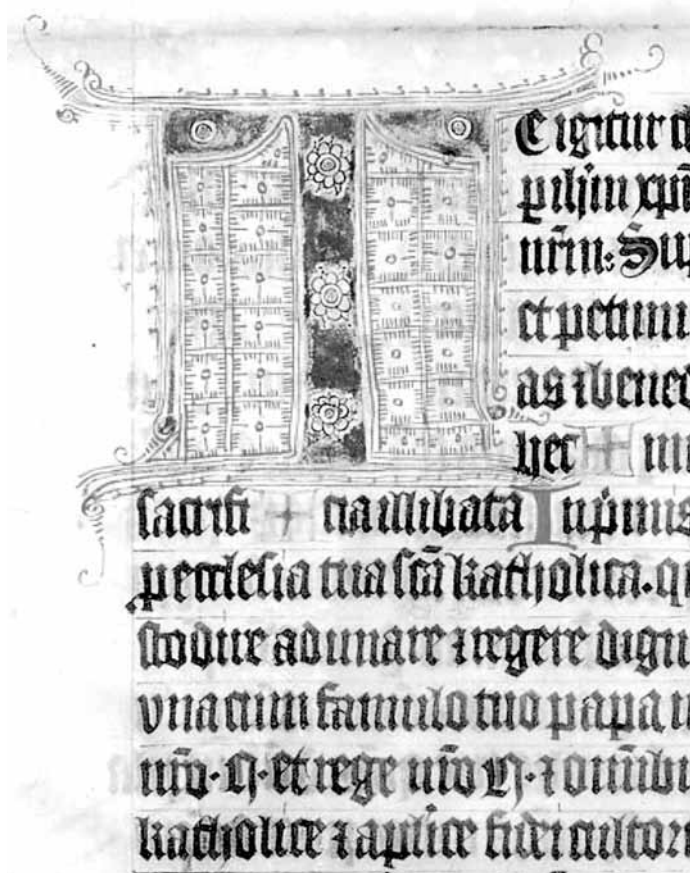 T E igitur cl
p̱ ih̄m xp̄m
n̄r̄m: Sup
et petimu
as ⁊ bened
hec + mu
sacrifi + cia illibata In pͥmis
p̱ ecclesia tua sc̄a katholica. q
stodire adunare ⁊ regere dign
vna cum famulo tuo papa n
nr̄o · N · et rege nr̄o N · ⁊ om̄ibu
katholice ⁊ aplīce fidei cultori